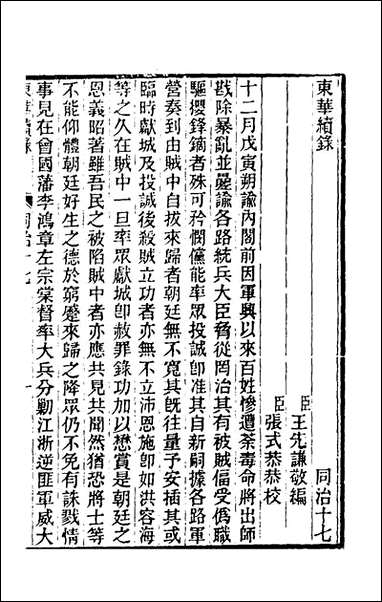 東華續錄　同治十七
臣王先謙敬編
臣張式恭恭校
十二月戊寅朔諭內閣前因軍興以來百姓慘遭荼毒命將出師
戡除暴亂並曡諭各路統兵大臣脅從罔治其有被賊偪受僞職
驅櫻鋒鏑者殊可矜憫儻能率眾投誠卽准其自新嗣據各路軍
營奏到由賊中自拔來歸者朝廷無不寬其旣往量予安插其或
臨時獻城及投誠後殺賊立功者亦無不立沛恩施卽如洪容海
等之久在賊中一旦率眾獻城卽赦罪錄功加以懋賞是朝廷之
恩義昭著雖吾民之被陷賊中者亦應共見共聞然猶恐將士等
不能仰體朝廷好生之德於窮蹙來歸之降眾仍不免有誅戮情
事見在曾國藩李鴻章左宗棠督率大兵分勦江浙逆匪軍威大
東華續錄　同治十七　一